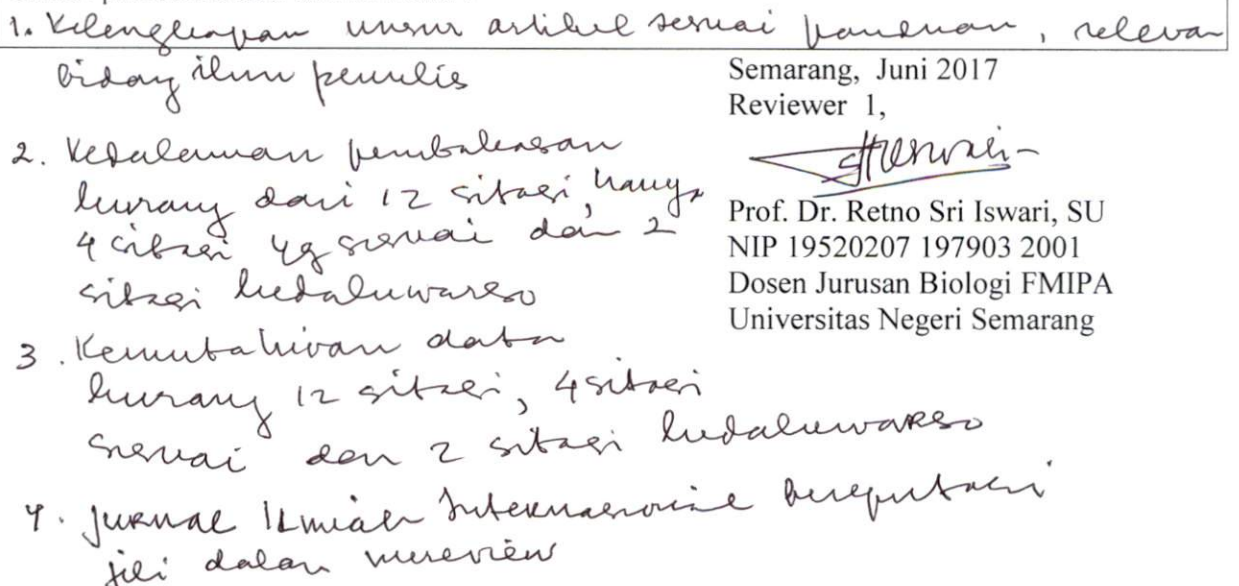 1. Kelengkapan unsur artikel sesuai panduan, relevan
bidang ilmu penulis
2. Kedalaman pembahasan
kurang dari 12 sitasi, hanya
4 sitasi yg sesuai dan 2
sitasi kedaluwarso
3. Kemutahiran data
kurang 12 sitasi, 4 sitasi
sesuai dan 2 sitasi kedaluwarso
4. Jurnal Ilmiah Internasional bereputasi
jeli dalam mereview
Semarang, Juni 2017
Reviewer 1,
Prof. Dr. Retno Sri Iswari, SU
NIP 19520207 197903 2001
Dosen Jurusan Biologi FMIPA
Universitas Negeri Semarang